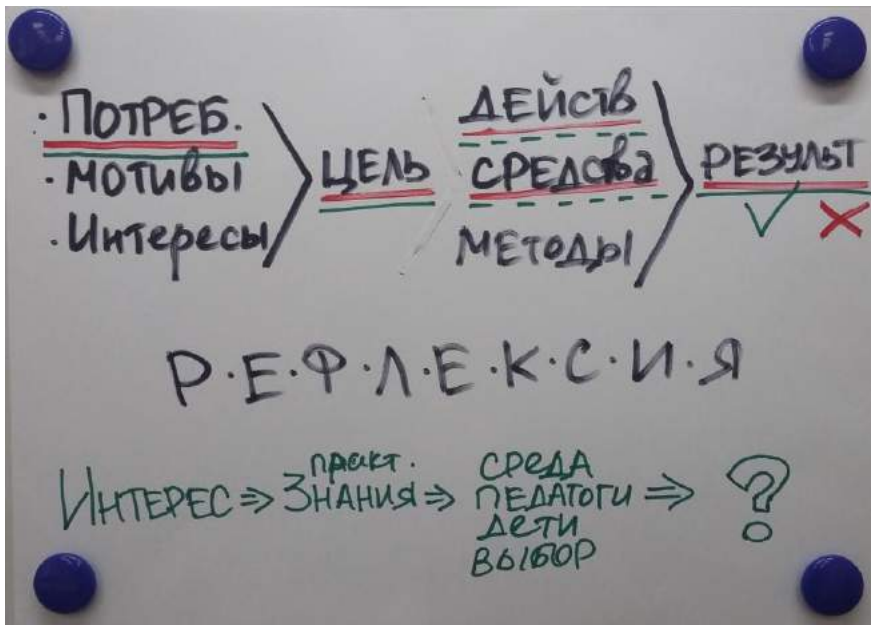 · ПОТРЕБ.
· МОТИВЫ
· Интересы
ЦЕЛЬ
ДЕЙСТВ
СРЕДСТВа
МЕТОДЫ
РЕЗУЛЬТ
Р·Е·Ф·Л·Е·К·С·И·Я
ИНТЕРЕС ⇒ практ. ЗНАНИЯ ⇒
СРЕДА
ПЕДАГОГИ
ДЕТИ
ВЫБОР
⇒ ?